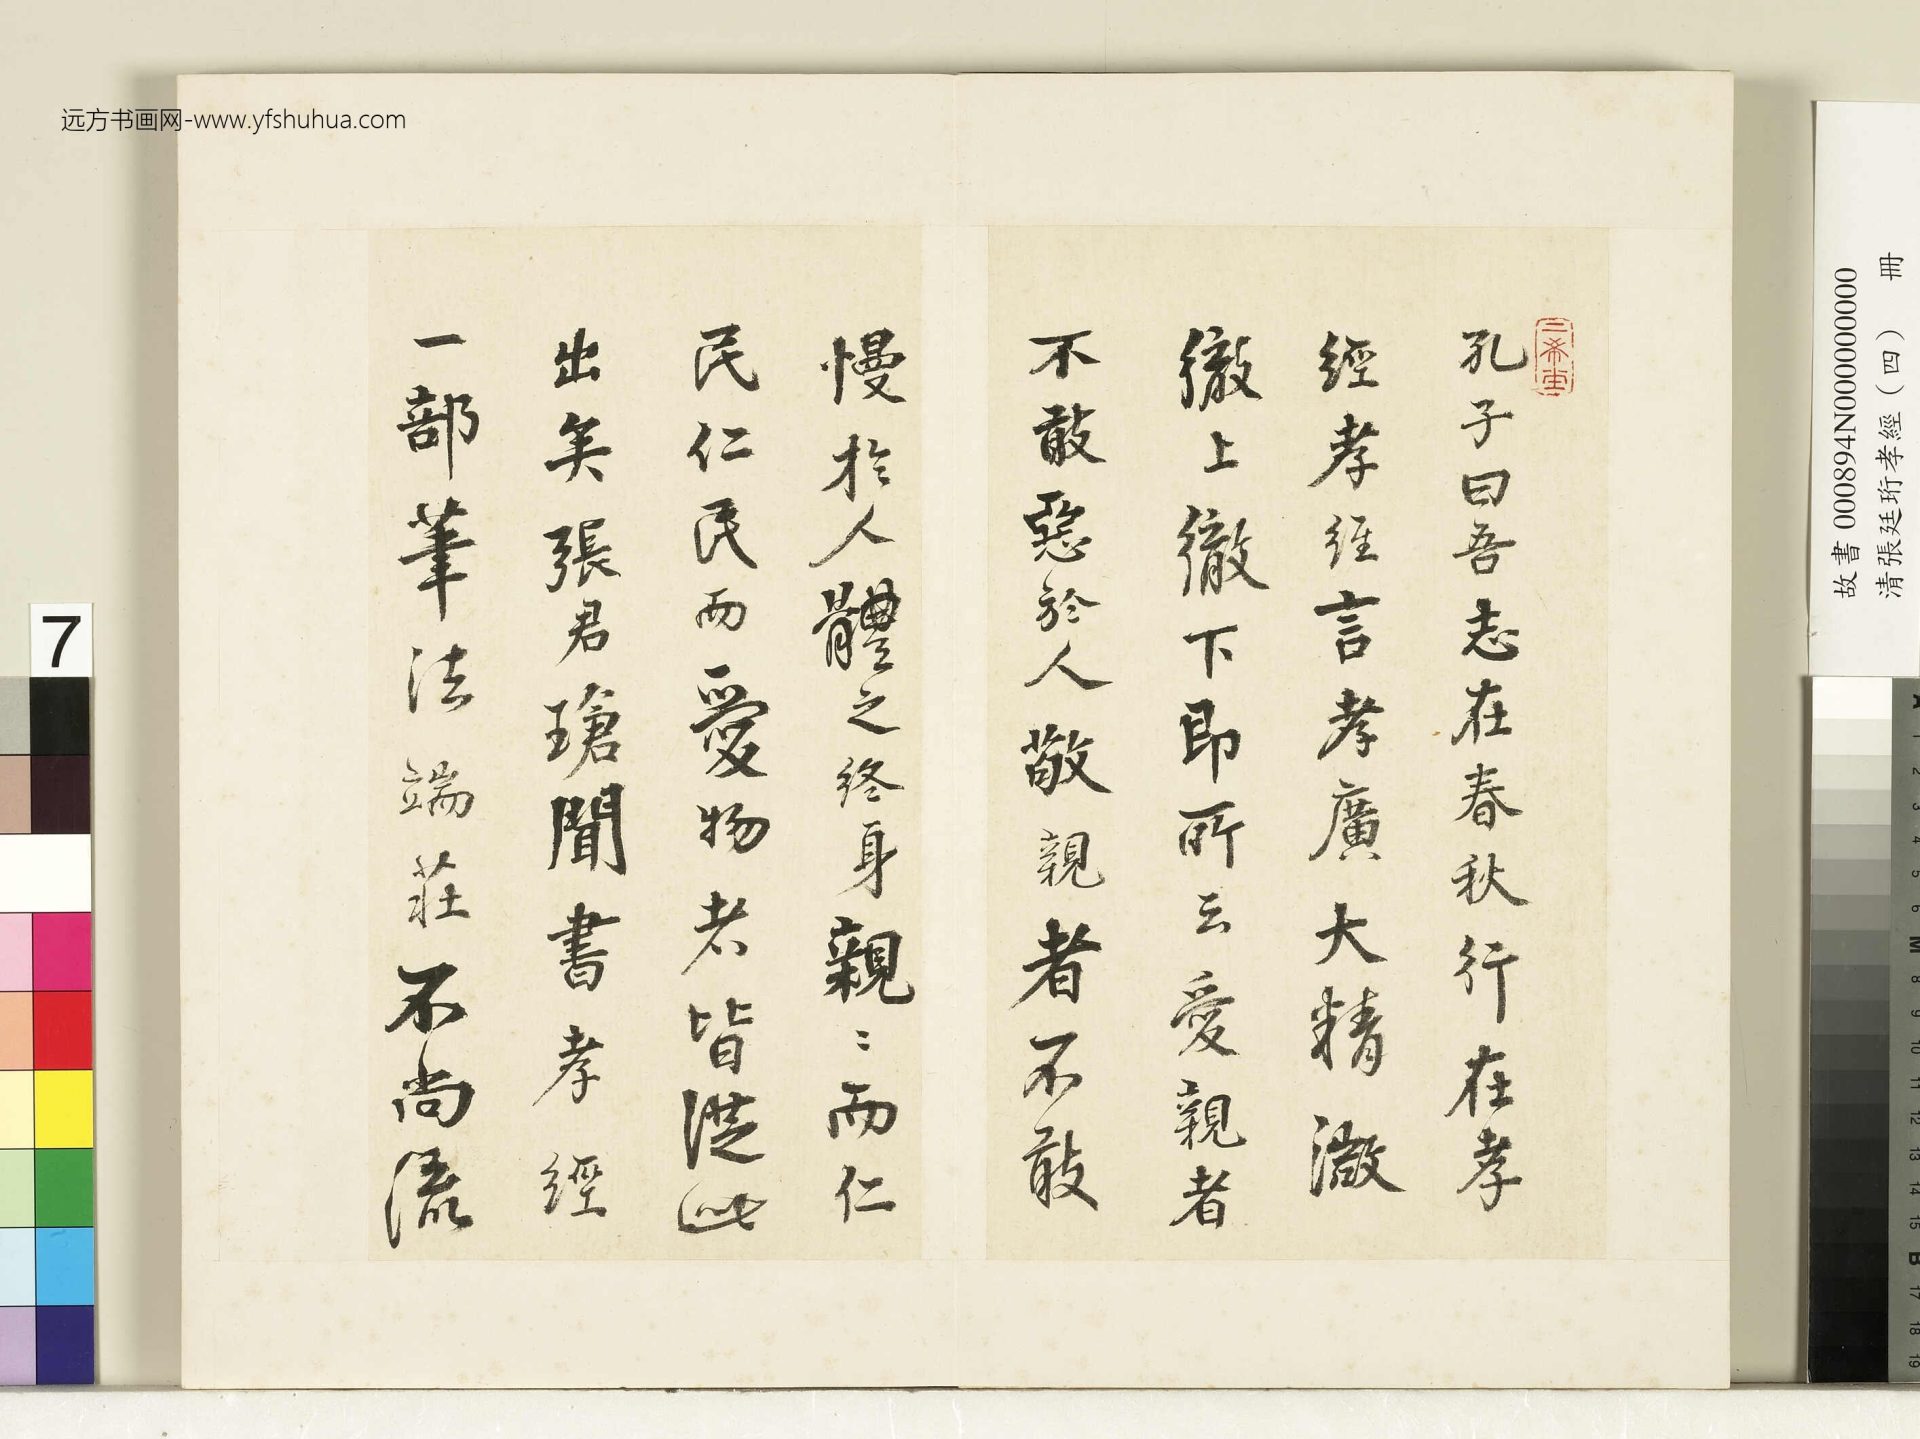 远方书画网-www.yfshuhua.com
三希堂
孔子曰吾志在春秋行在孝
經孝經言孝廣大精微
徹上徹下即所云愛親者
不敢惡於人敬親者不敢
慢於人體之終身親〻而仁
民仁民而愛物者皆從此
出矣張君瑲聞書孝經
一部筆法端莊不尚流
故書 000894N000000000
清張廷珩孝經（四） 冊
7